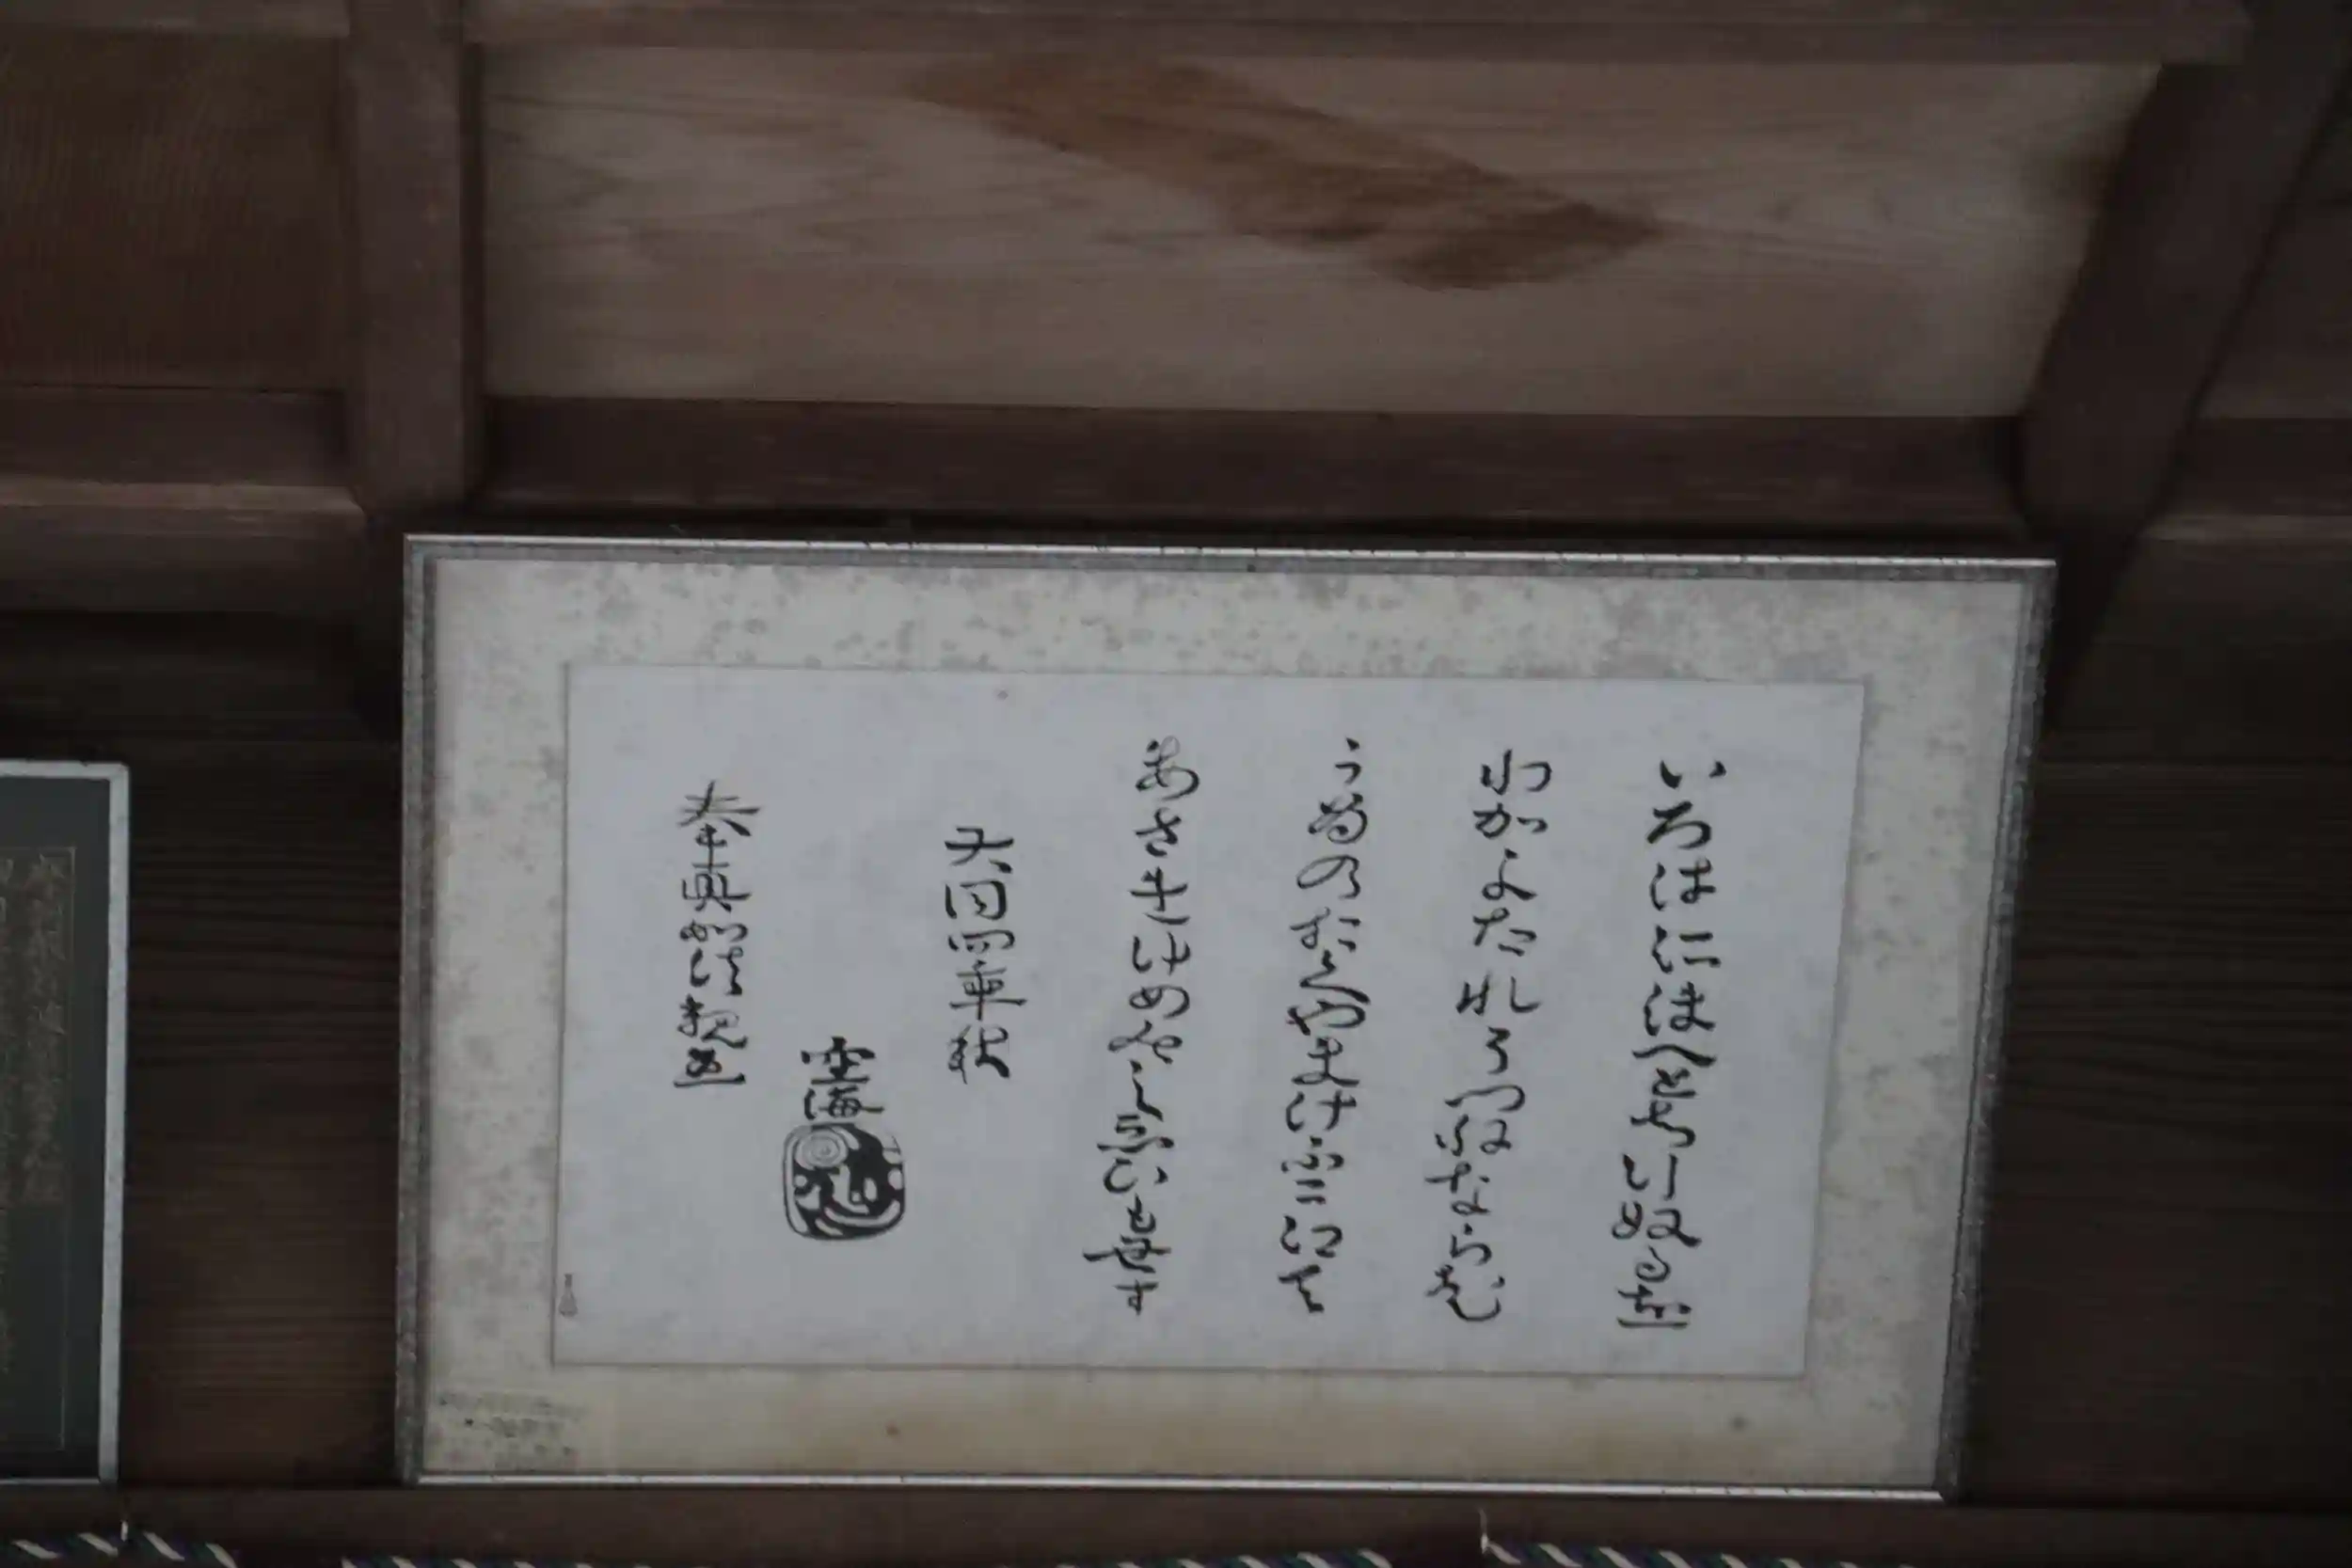 いろはにほへとちりぬるを
わかよたれそつねならむ
うゐのおくやまけふこえて
あさきゆめみしゑひもせす
大同四年秋
空海